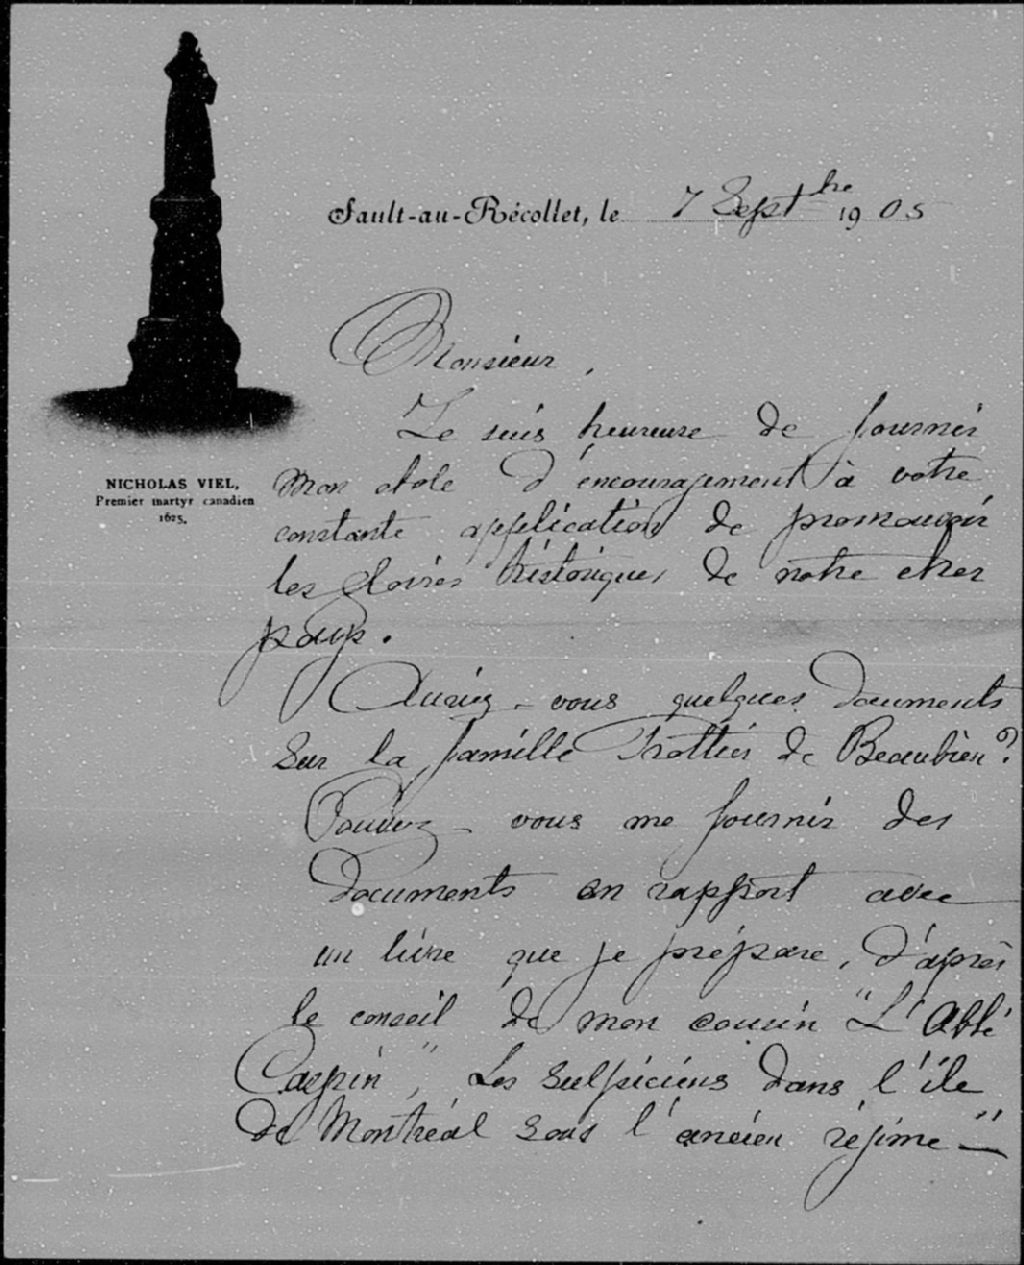 Sault-au-Récollet, le 7 Septbre 1905
NICHOLAS VIEL,
Premier martyr canadien
1625.
Monsieur,
Je suis heureuse de fournir
mon obole d'encouragement à votre
constante application de promouvoir
les gloires historiques de notre cher
pays.
Auriez-vous quelques documents
sur la famille Trottier de Beaubien?
Pouvez-vous me fournir des
documents en rapport avec
un livre que je prépare, d'après
le conseil de mon cousin "L'Abbé
Caspin", Les Sulpiciens dans l'île
de Montréal sous l'ancien régime"